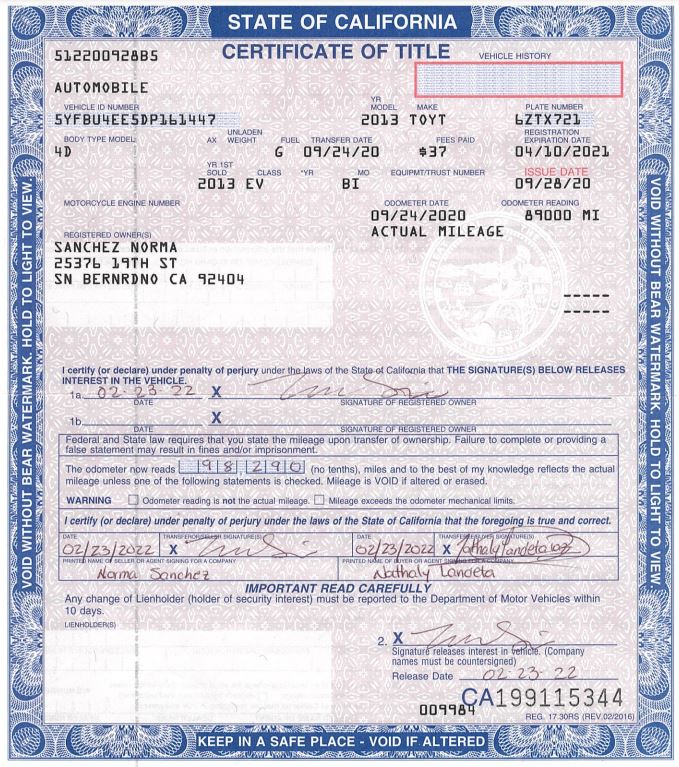 STATE OF CALIFORNIA
CERTIFICATE OF TITLE
VEHICLE HISTORY
51220092885
AUTOMOBILE
VEHICLE ID NUMBER YR MODEL MAKE PLATE NUMBER
5YFBU4EE5DP161447 2013 TOYT 6ZTX721
BODY TYPE MODEL AX UNLADEN WEIGHT FUEL TRANSFER DATE FEES PAID REGISTRATION EXPIRATION DATE
4D G 09/24/20 $37 04/10/2021
YR 1ST SOLD CLASS *YR MO EQUIPMT/TRUST NUMBER ISSUE DATE
2013 EV BI 09/28/20
MOTORCYCLE ENGINE NUMBER ODOMETER DATE ODOMETER READING
09/24/2020 89000 MI
ACTUAL MILEAGE
REGISTERED OWNER(S)
SANCHEZ NORMA
25376 19TH ST
SN BERNRDNO CA 92404
-----
-----
I certify (or declare) under penalty of perjury under the laws of the State of California that THE SIGNATURE(S) BELOW RELEASES
INTEREST IN THE VEHICLE.
1a. 02-23-22 X
DATE SIGNATURE OF REGISTERED OWNER
1b. X
DATE SIGNATURE OF REGISTERED OWNER
Federal and State law requires that you state the mileage upon transfer of ownership. Failure to complete or providing a
false statement may result in fines and/or imprisonment.
The odometer now reads 98,290 (no tenths), miles and to the best of my knowledge reflects the actual
mileage unless one of the following statements is checked. Mileage is VOID if altered or erased.
WARNING Odometer reading is not the actual mileage. Mileage exceeds the odometer mechanical limits.
I certify (or declare) under penalty of perjury under the laws of the State of California that the foregoing is true and correct.
DATE TRANSFEROR/SELLER SIGNATURE(S) DATE TRANSFEREE/BUYER SIGNATURE(S)
02/23/2022 X 02/23/2022 X
PRINTED NAME OF SELLER OR AGENT SIGNING FOR A COMPANY PRINTED NAME OF BUYER OR AGENT SIGNING FOR A COMPANY
Norma Sanchez Nathaly Landeta
IMPORTANT READ CAREFULLY
Any change of Lienholder (holder of security interest) must be reported to the Department of Motor Vehicles within
10 days.
LIENHOLDER(S)
2. X
Signature releases interest in vehicle. (Company
names must be countersigned)
Release Date 02-23-22
CA199115344
009984
REG. 17.30RS (REV.02/2016)
KEEP IN A SAFE PLACE - VOID IF ALTERED
VOID WITHOUT BEAR WATERMARK. HOLD TO LIGHT TO VIEW
VOID WITHOUT BEAR WATERMARK. HOLD TO LIGHT TO VIEW